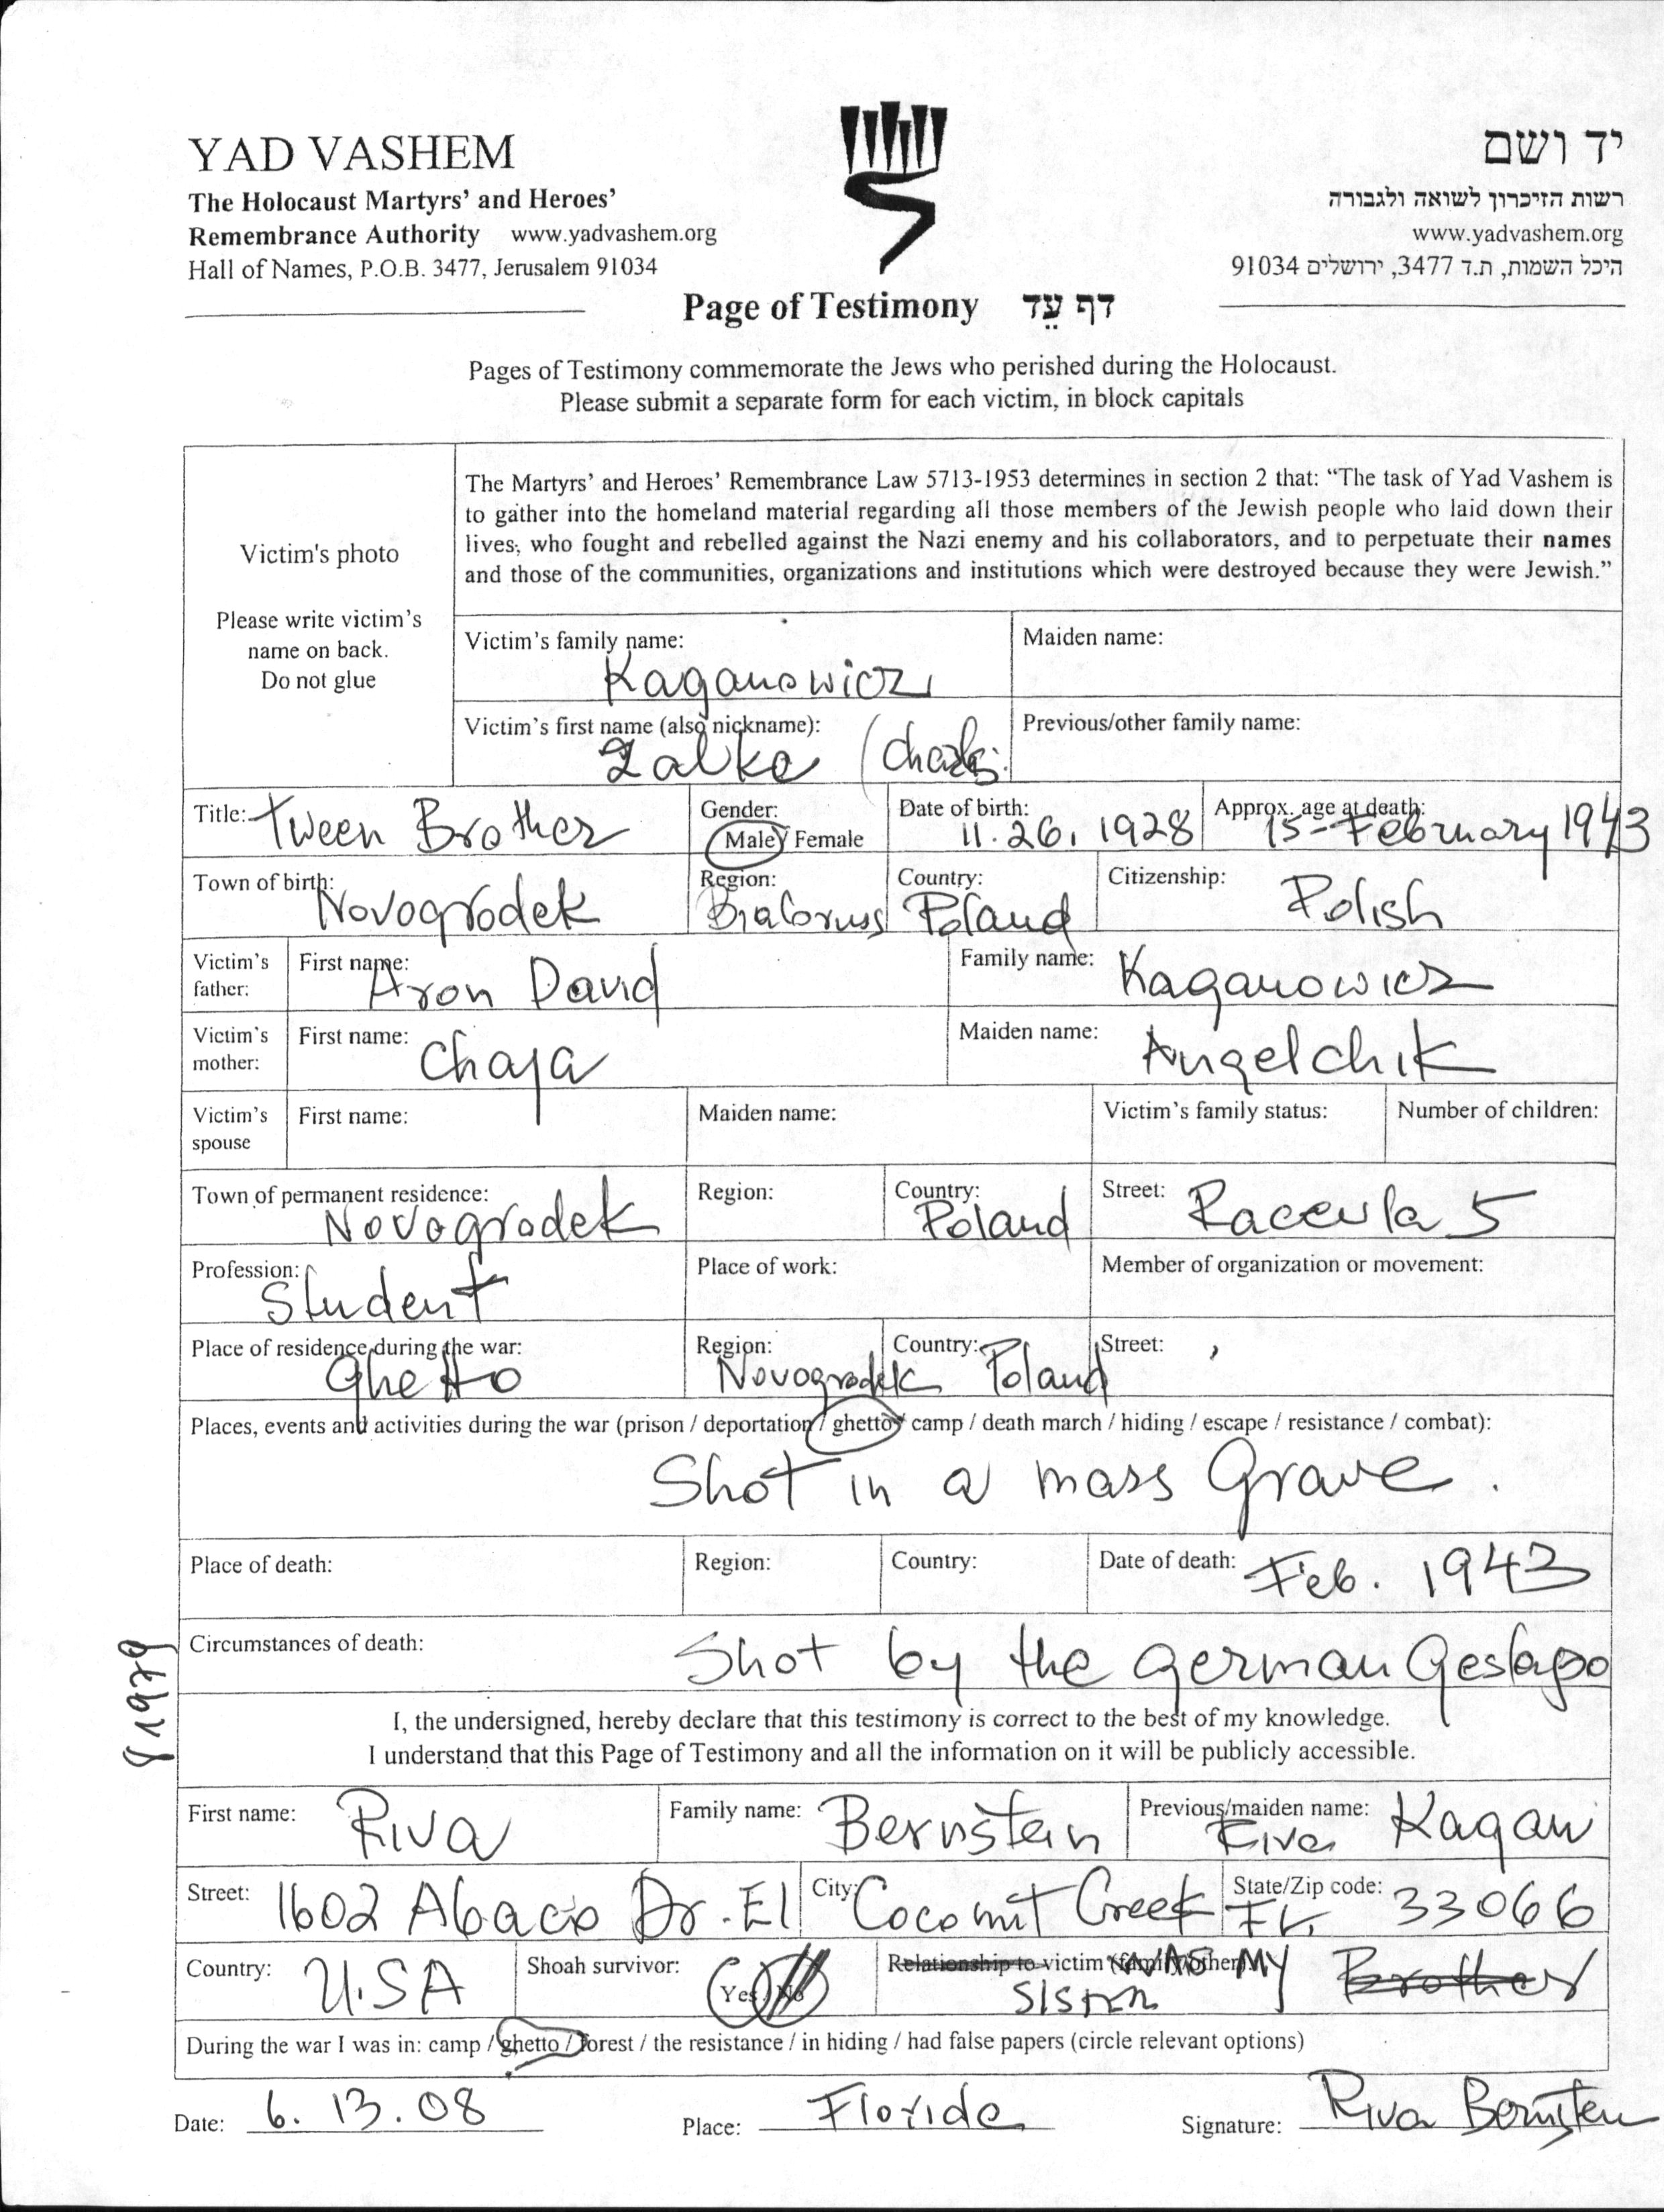 YAD VASHEM
The Holocaust Martyrs' and Heroes'
Remembrance Authority www.yadvashem.org
Hall of Names, P.O.B. 3477, Jerusalem 91034
יד ושם
רשות הזיכרון לשואה ולגבורה
www.yadvashem.org
היכל השמות, ת.ד 3477, ירושלים 91034
Page of Testimony דף עֵד
Pages of Testimony commemorate the Jews who perished during the Holocaust.
Please submit a separate form for each victim, in block capitals
Victim's photo
Please write victim's
name on back.
Do not glue
The Martyrs' and Heroes' Remembrance Law 5713-1953 determines in section 2 that: "The task of Yad Vashem is
to gather into the homeland material regarding all those members of the Jewish people who laid down their
lives, who fought and rebelled against the Nazi enemy and his collaborators, and to perpetuate their names
and those of the communities, organizations and institutions which were destroyed because they were Jewish."
Victim's family name: Kaganowicz
Maiden name:
Victim's first name (also nickname):
Previous/other family name:
Title: Tween Brother
Gender: Male / Female
Date of birth: 11.26.1928
Approx. age at death: 15 - February 1943
Town of birth: Novogrodek
Region:
Country: Poland
Citizenship: Polish
Victim's father: First name: Aron David
Family name: Kaganowicz
Victim's mother: First name: Chaja
Maiden name: Angelchik
Victim's spouse First name:
Maiden name:
Victim's family status:
Number of children:
Town of permanent residence: Novogrodek
Region:
Country: Poland
Street: 5
Profession: Student
Place of work:
Member of organization or movement:
Place of residence during the war: Ghetto
Region: Novogrodek
Country: Poland
Street:
Places, events and activities during the war (prison / deportation / ghetto / camp / death march / hiding / escape / resistance / combat):
Shot in a mass Grave.
Place of death:
Region:
Country:
Date of death: Feb. 1943
Circumstances of death: Shot by the german Gestapo
I, the undersigned, hereby declare that this testimony is correct to the best of my knowledge.
I understand that this Page of Testimony and all the information on it will be publicly accessible.
First name: Riva
Family name: Bernstein
Previous/maiden name: Riva Kagan
Street: 1602 Abaco Dr. E1
City: Coconut Creek
State/Zip code: FL. 33066
Country: U.SA
Shoah survivor: Yes / No
Relationship to victim (family/other): WAS MY Brother
SISTER
During the war I was in: camp / ghetto / forest / the resistance / in hiding / had false papers (circle relevant options)
Date: 6. 13. 08
Place: Florida
Signature: Riva Bernstein